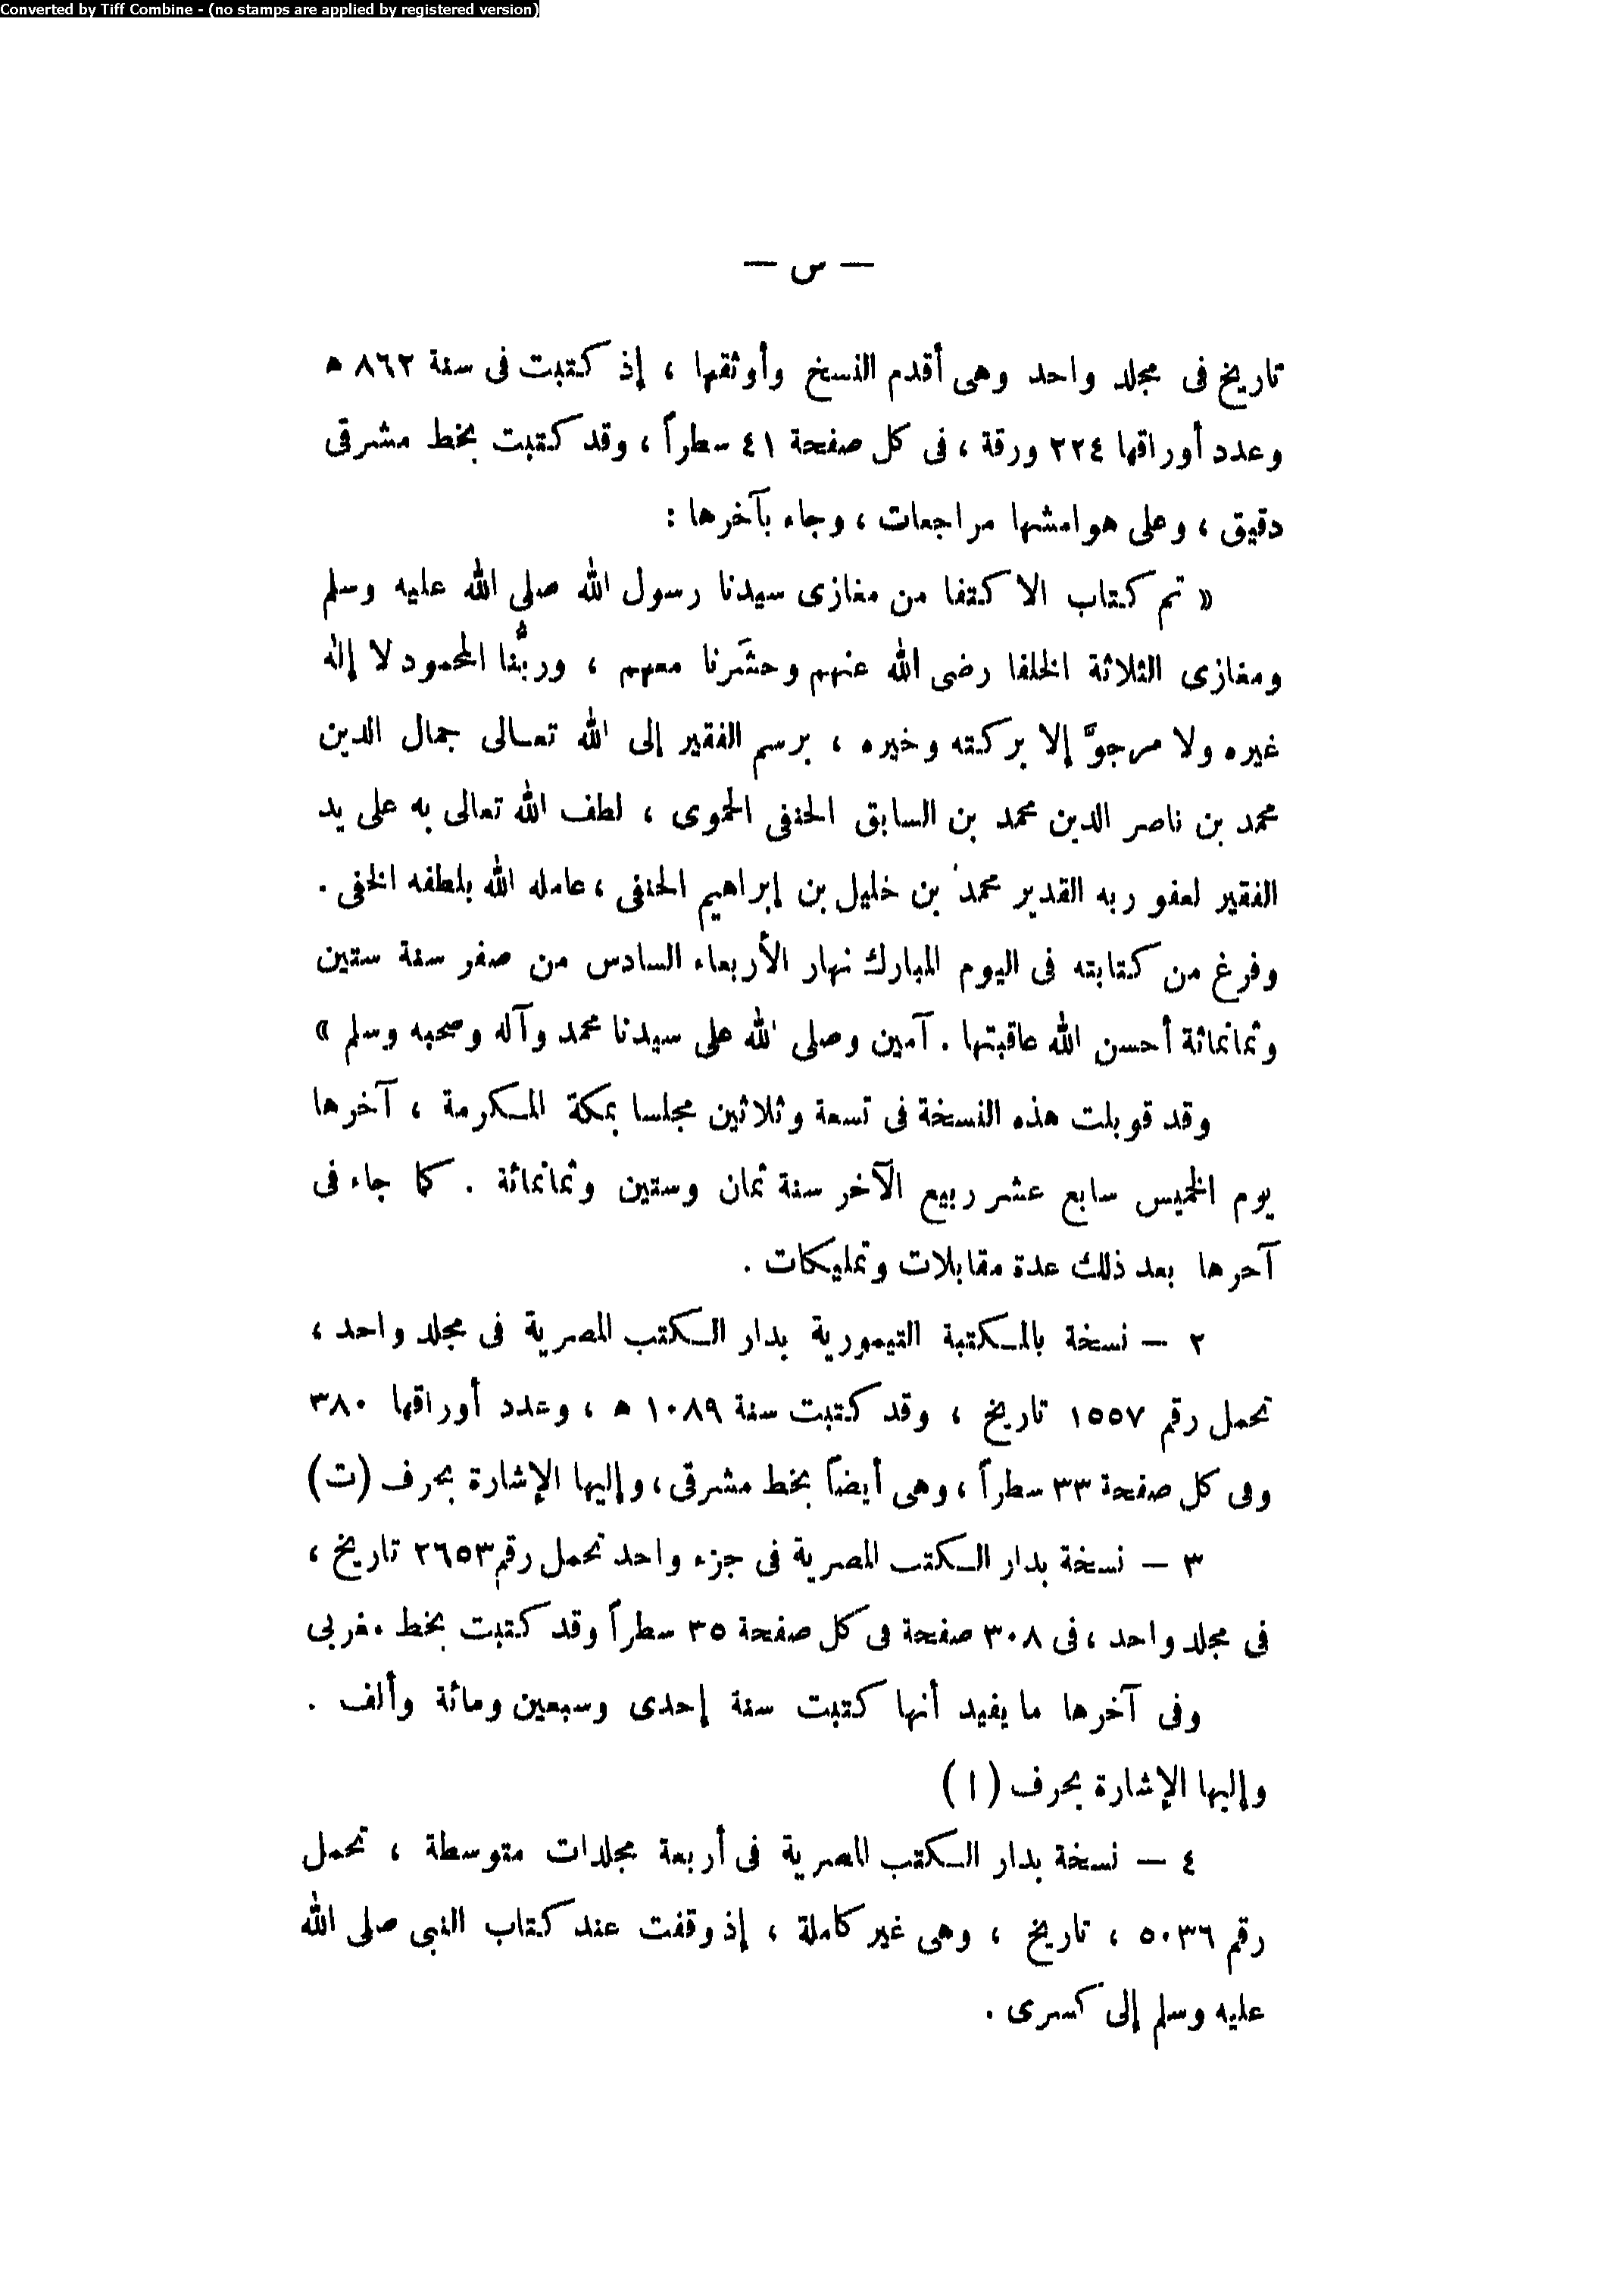 Converted by Tiff Combine - (no stamps are applied by registered version)
— س —
تاريخ فى مجلد واحد وهى أقدم النسخ وأوثقها ، إذ كتبت فى سنة ٨٦٢ ه
وعدد أوراقها ٢٢٤ ورقة ، فى كل صفحة ٤١ سطراً ، وقد كتبت بخط مشرقى
دقيق ، وعلى هوامشها مراجعات ، وجاء بآخرها :
« تم كتاب الاكتفا من مغازى سيدنا رسول الله صلى الله عليه وسلم
ومغازى الثلاثة الخلفا رضى الله عنهم وحشَرنا معهم ، وربُّنا المحمود لا إله
غيره ولا مرجوَّ إلا بركته وخيره ، برسم الفقير إلى الله تعالى جمال الدين
محمد بن ناصر الدين محمد بن السابق الحنفى الحموى ، لطف الله تعالى به على يد
الفقير لعفو ربه القدير محمد بن خليل بن إبراهيم الحنفى ، عامله الله بلطفه الخفى .
وفرغ من كتابته فى اليوم المبارك نهار الأربعاء السادس من صفر سنة ستين
وثمانمائة أحسن الله عاقبتها . آمين وصلى الله على سيدنا محمد وآله وصحبه وسلم »
وقد قوبلت هذه النسخة فى تسعة وثلاثين مجلسا بمكة المكرمة ، آخرها
يوم الخميس سابع عشر ربيع الآخر سنة ثمان وستين وثمانمائة . كما جاء فى
آحرها بعد ذلك عدة مقابلات وتمليكات .
٢ — نسخة بالمكتبة التيمورية بدار الكتب المصرية فى مجلد واحد ،
تحمل رقم ١٥٥٧ تاريخ ، وقد كتبت سنة ١٠٨٩ ه ، وعدد أوراقها ٣٨٠
وفى كل صفحة ٣٣ سطراً ، وهى أيضاً بخط مشرقى ، وإليها الإشارة بحرف (ت)
٣ — نسخة بدار الكتب المصرية فى جزء واحد تحمل رقم ٢٦٥٣ تاريخ ،
فى مجلد واحد ، فى ٣٠٨ صفحة فى كل صفحة ٣٥ سطراً وقد كتبت بخط مغربى
وفى آخرها ما يفيد أنها كتبت سنة إحدى وسبعين ومائة وألف .
وإليها الإشارة بحرف ( ا )
٤ — نسخة بدار الكتب المصرية فى أربعة مجلدات متوسطة ، تحمل
رقم ٥٠٣٦ ، تاريخ ، وهى غير كاملة ، إذ وقفت عند كتاب النبى صلى الله
عليه وسلم إلى كسرى .